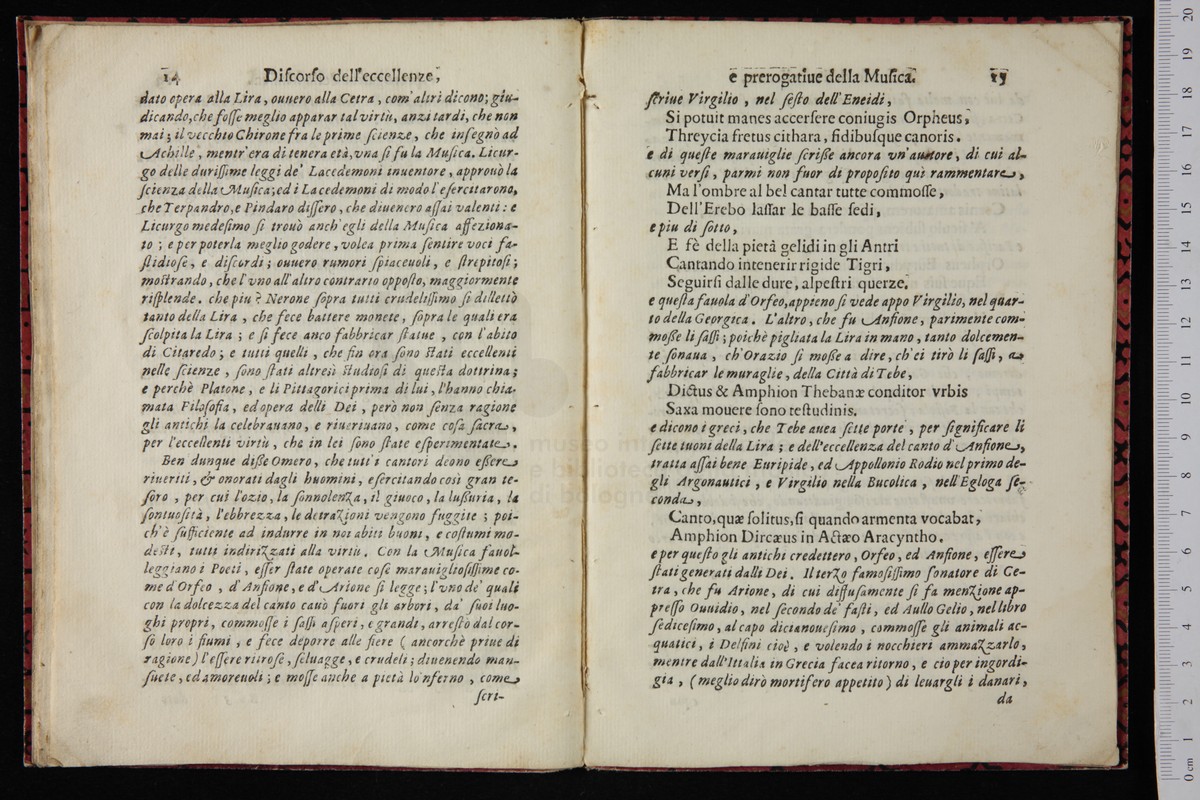 14 Diſcorſo dell'eccellenze,
dato opera alla Lira, ouuero alla Cetra, com'altri dicono; giu-
dicando, che foſſe meglio apparar tal virtù, anzi tardi, che non
mai; il vecchio Chirone fra le prime ſcienze, che inſegnò ad
Achille, mentr'era di tenera età, vna ſi fu la Muſica. Licur-
go delle duriſſime leggi de' Lacedemoni inuentore, approuò la
ſcienza della Muſica; ed i Lacedemoni di modo l'eſercitarono,
che Terpandro, e Pindaro diſſero, che diuenero aſſai valenti: e
Licurgo medeſimo ſi trouò anch'egli della Muſica affeziona-
to; e per poterla meglio godere, volea prima ſentire voci fa-
ſtidioſe, e diſcordi; ouuero rumori ſpiaceuoli, e ſtrepitoſi;
moſtrando, che l'vno all'altro contrario oppoſto, maggiormente
riſplende. che piu? Nerone ſopra tutti crudeliſſimo ſi dilettò
tanto della Lira, che fece battere monete, ſopra le quali era
ſcolpita la Lira; e ſi fece anco fabbricar ſtatue, con l'abito
di Citaredo; e tutti quelli, che fin ora ſono ſtati eccellenti
nelle ſcienze, ſono ſtati altresì ſtudioſi di queſta dottrina;
e perchè Platone, e li Pittagorici prima di lui, l'hanno chia-
mata Filoſofia, ed opera delli Dei, però non ſenza ragione
gli antichi la celebrauano, e riueriuano, come coſa ſacra,
per l'eccellenti virtù, che in lei ſono ſtate eſperimentate.
Ben dunque diſſe Omero, che tutt'i cantori deono eſſere
riueriti, & onorati dagli huomini, eſercitando così gran te-
ſoro, per cui l'ozio, la ſonnolenza, il giuoco, la luſſuria, la
ſontuoſità, l'ebbrezza, le detrazioni vengono fuggite; poi-
ch'è ſufficiente ad indurre in noi abiti buoni, e coſtumi mo-
deſti, tutti indirizzati alla virtù. Con la Muſica fauol-
leggiano i Poeti, eſſer ſtate operate coſe marauiglioſiſſime co-
me d'Orfeo, d'Anfione, e d'Arione ſi legge; l'vno de' quali
con la dolcezza del canto cauò fuori gli arbori, da' ſuoi luo-
ghi propri, commoſſe i ſaſſi aſperi, e grandi, arreſtò dal cor-
ſo loro i fiumi, e fece deporre alle fiere (ancorchè priue di
ragione) l'eſſere ritroſe, ſeluagge, e crudeli; diuenendo man-
ſuete, ed amoreuoli; e moſſe anche a pietà lo'nferno, come
ſcri-
e prerogatiue della Muſica. 15
ſcriue Virgilio, nel ſeſto dell'Eneidi,
Si potuit manes accerſere coniugis Orpheus,
Threycia fretus cithara, fidibuſque canoris.
e di queſte marauiglie ſcriſſe ancora vn'auttore, di cui al-
cuni verſi, parmi non fuor di propoſito quì rammentare,
Ma l'ombre al bel cantar tutte commoſſe,
Dell'Erebo laſſar le baſſe ſedi,
e piu di ſotto,
E fè della pietà gelidi in gli Antri
Cantando intenerir rigide Tigri,
Seguirſi dalle dure, alpeſtri querze.
e queſta fauola d'Orfeo, appieno ſi vede appo Virgilio, nel quar-
to della Georgica. L'altro, che fu Anfione, parimente com-
moſſe li ſaſſi; poichè pigliata la Lira in mano, tanto dolcemen-
te ſonaua, ch'Orazio ſi moſſe a dire, ch'ei tirò li ſaſſi, a
fabbricar le muraglie, della Città di Tebe,
Dictus & Amphion Thebanæ conditor vrbis
Saxa mouere ſono teſtudinis.
e dicono i greci, che Tebe auea ſette porte, per ſignificare li
ſette tuoni della Lira; e dell'eccellenza del canto d'Anfione,
tratta aſſai bene Euripide, ed Appollonio Rodio nel primo de-
gli Argonautici, e Virgilio nella Bucolica, nell'Egloga ſe-
conda,
Canto, quæ ſolitus, ſi quando armenta vocabat,
Amphion Dircæus in Actæo Aracyntho.
e per queſto gli antichi credettero, Orfeo, ed Anfione, eſſere
ſtati generati dalli Dei. Il terzo famoſiſſimo ſonatore di Ce-
tra, che fu Arione, di cui diffuſamente ſi fa menzione ap-
preſſo Ouuidio, nel ſecondo de' faſti, ed Aullo Gelio, nel libro
ſediceſimo, al capo dicianoueſimo, commoſſe gli animali ac-
quatici, i Delfini cioè, e volendo i nocchieri ammazzarlo,
mentre dall'Ittalia in Grecia facea ritorno, e cio per ingordi-
gia, (meglio dirò mortifero appetito) di leuargli i danari,
da